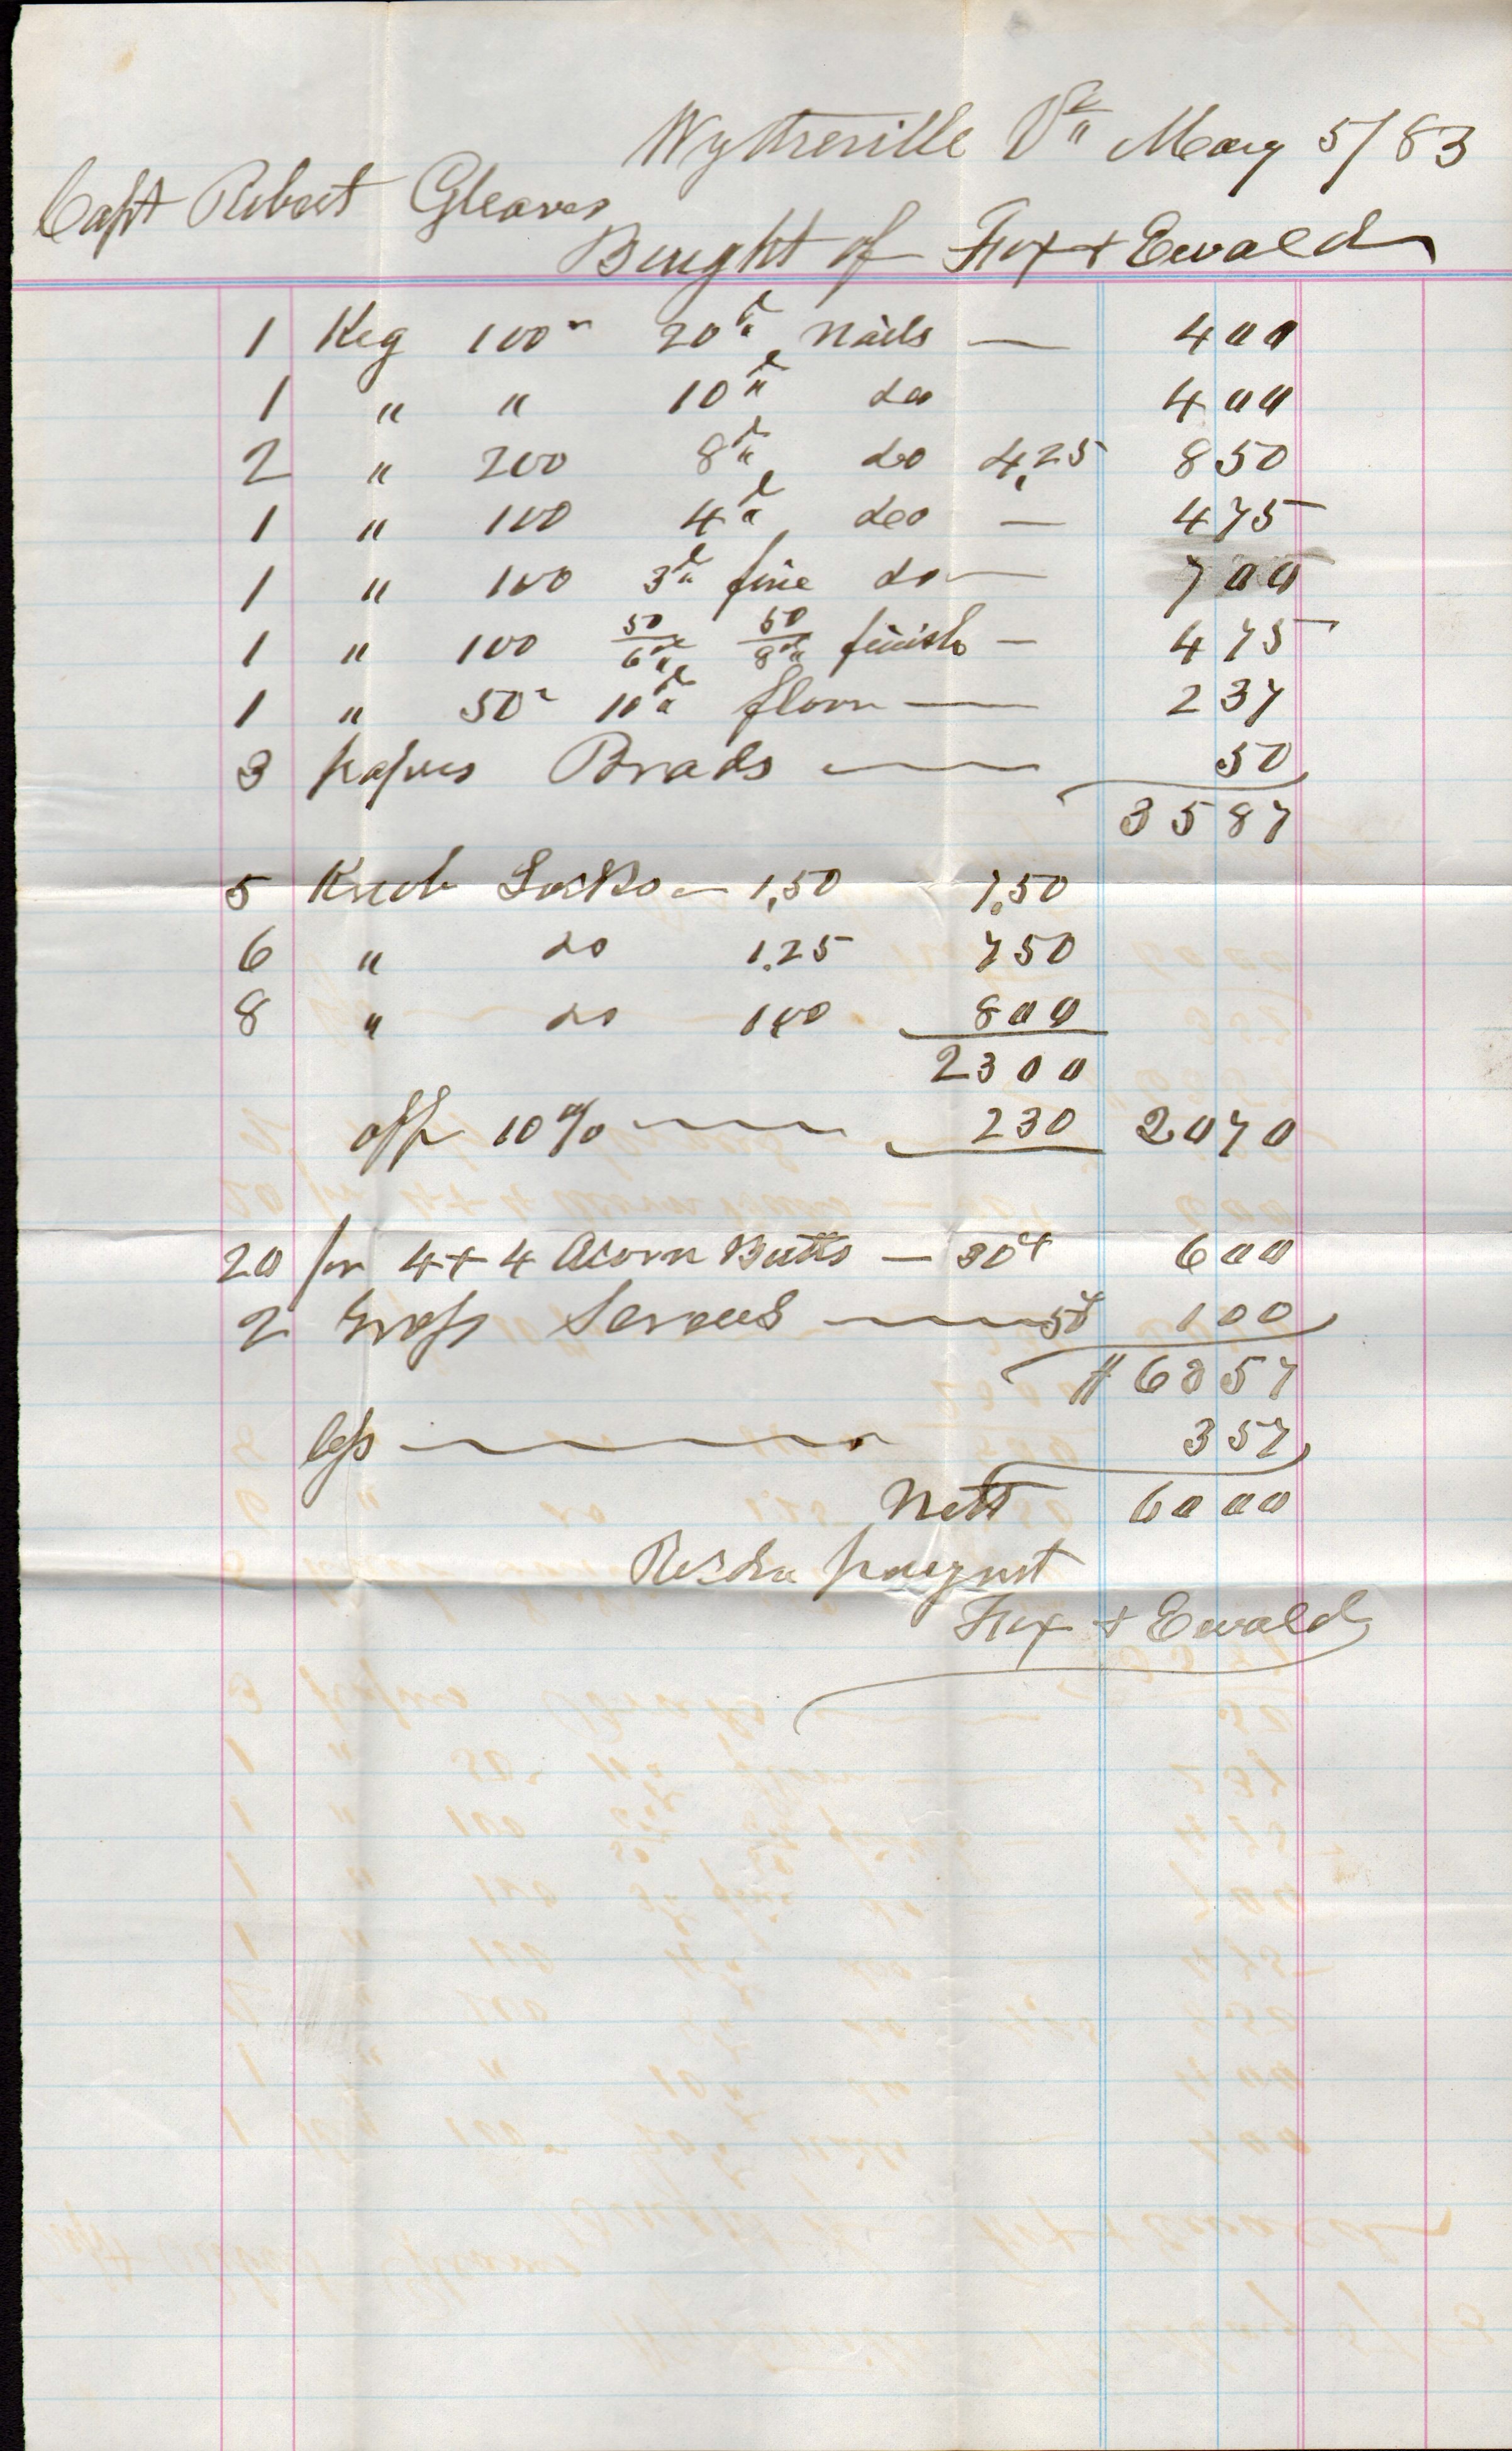 Wytheville Va May 5/83
Capt Robert Gleaves
Bought of Fox + Ewald
1 Keg 100 " 20d Nails — 400
1 " " 10d do 400
2 " 200 8d do 4,25 850
1 " 100 4d do — 475
1 " 100 3d fine do — 700
1 " 100 50/6d 50/8d finish — 475
1 " 50 " 10d floor — 237
3 papers Brads — 50
3587
5 Knob Locks — 1,50 7,50
6 " do 1.25 750
8 " do 100 800
2300
off 10% — 230 2070
20 pr 4 + 4 Acorn Butts — 30c 600
2 Gross Screws — 50 100
# 6357
less — 357
Nett 6000
Recd payment
Fox + Ewald